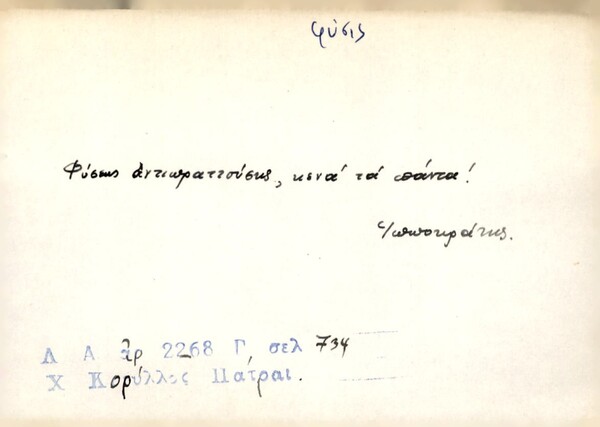 φύσις
Φύσεως ἀντιπραττούσης, κενά τά πάντα!
Ἱπποκράτης.
Λ Α ἀρ 2268 Γ, σελ 734
Χ Κορύλλος Πάτραι.